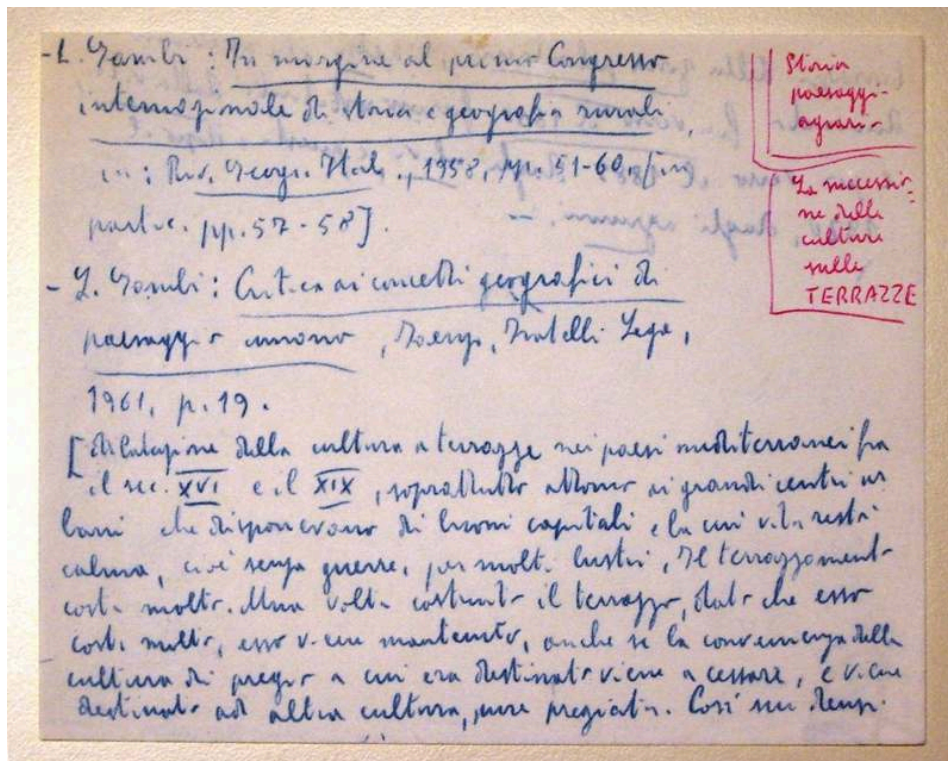 - L. Gambi: In margine al primo Congresso
internazionale di storia e geografia rurali,
in: Riv. Geogr. Ital., 1958, pp. 51-60 [in
partic. pp. 57-58].
- L. Gambi: Critica ai concetti geografici di
paesaggio umano, Faenza, Fratelli Lega,
1961, p. 19.
[dilatazione della cultura a terrazze nei paesi mediterranei fra
il sec. XVI e il XIX, soprattutto attorno ai grandi centri ur
bani che disponevano di buoni capitali e la cui vita restò
calma, cioè senza guerre, per molti lustri. Il terrazzamento
costa molto. Una volta costruito il terrazzo, dato che esso
costa molto, esso viene mantenuto, anche se la convenienza della
cultura di pregio a cui era destinato viene a cessare, e viene
destinato ad altra cultura, pure pregiata. Così sui
Storia
paesaggi-
agrari-
La successio-
ne delle
culture
sulle
TERRAZZE